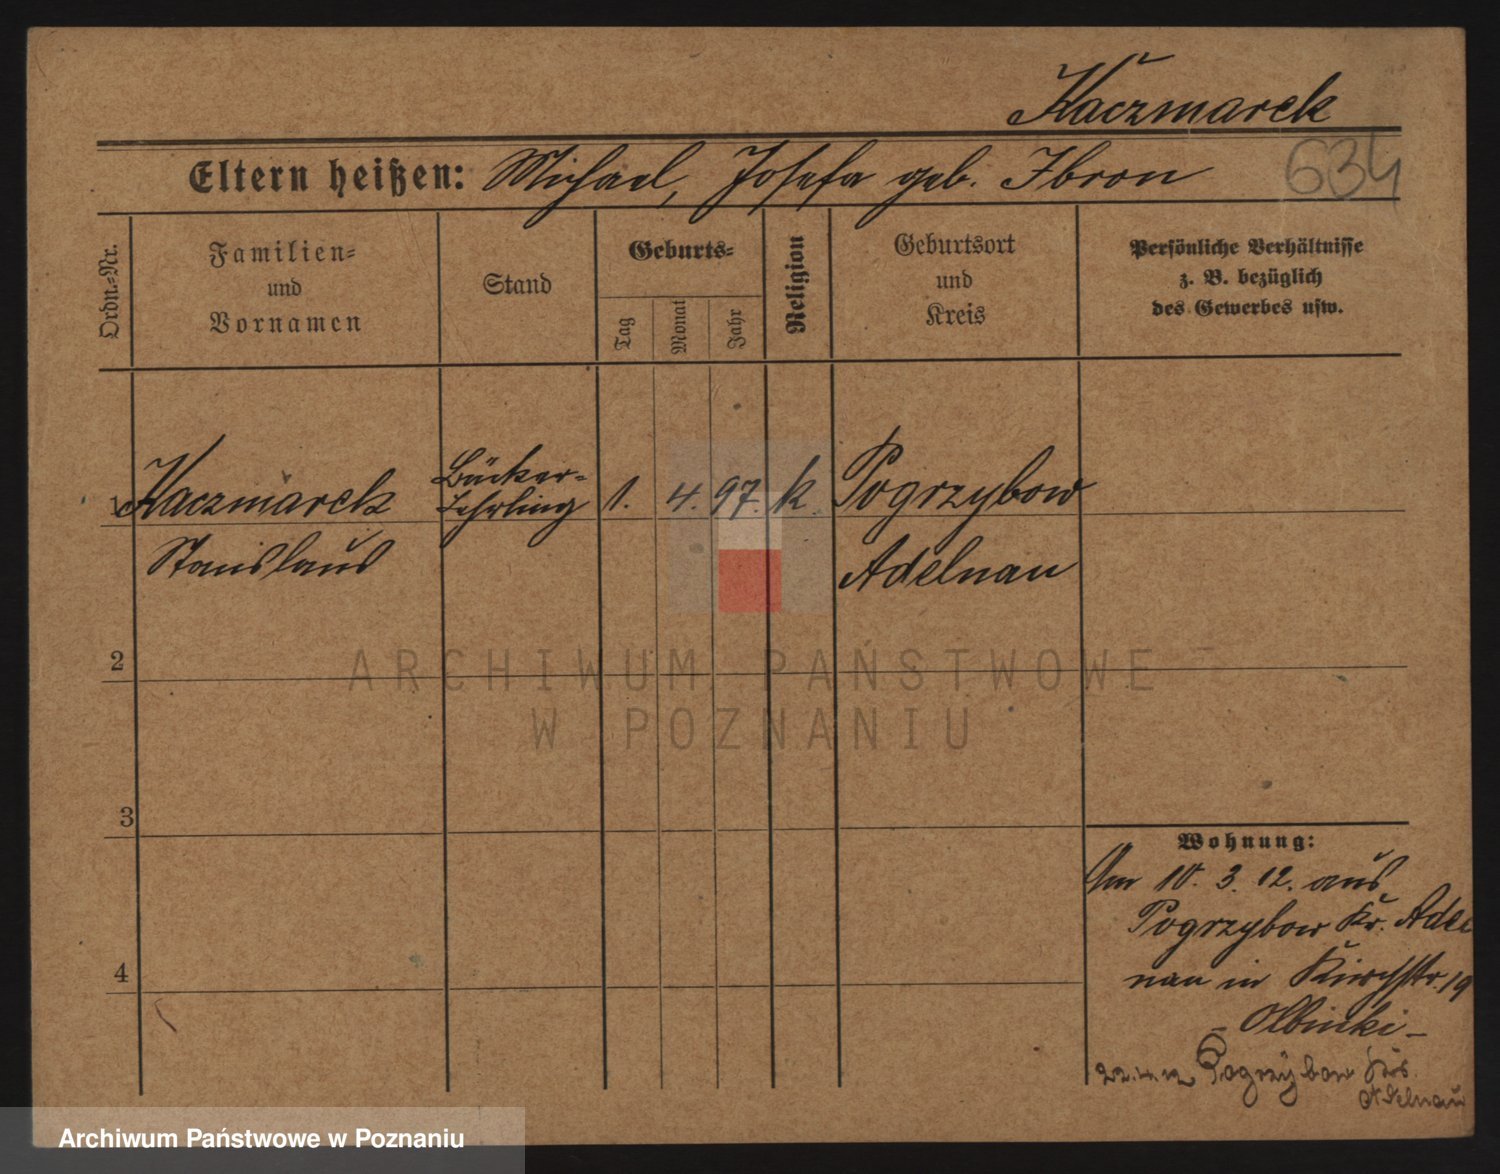 Kaczmarek
634
Eltern heißen: Michael, Josefa geb. Zbron
Ordn.-Nr.
Familien-
und
Vornamen
Stand
Geburts-
Tag
Monat
Jahr
Religion
Geburtsort
und
Kreis
Persönliche Verhältnisse
z. B. bezüglich
des Gewerbes usw.
1 Kaczmarek
Stanislaus
Bäcker-
Lehrling
1. 4. 97. k.
Pogrzybow
Adelnau
2
3
4
Wohnung:
Am 10. 3. 12. aus
Pogrzybow Kr. Adel
nau in Kirchstr. 19
- Olbinski -
22.4.12 Pogrzybow Krs.
Adelnau
ARCHIWUM PAŃSTWOWE
W POZNANIU
Archiwum Państwowe w Poznaniu